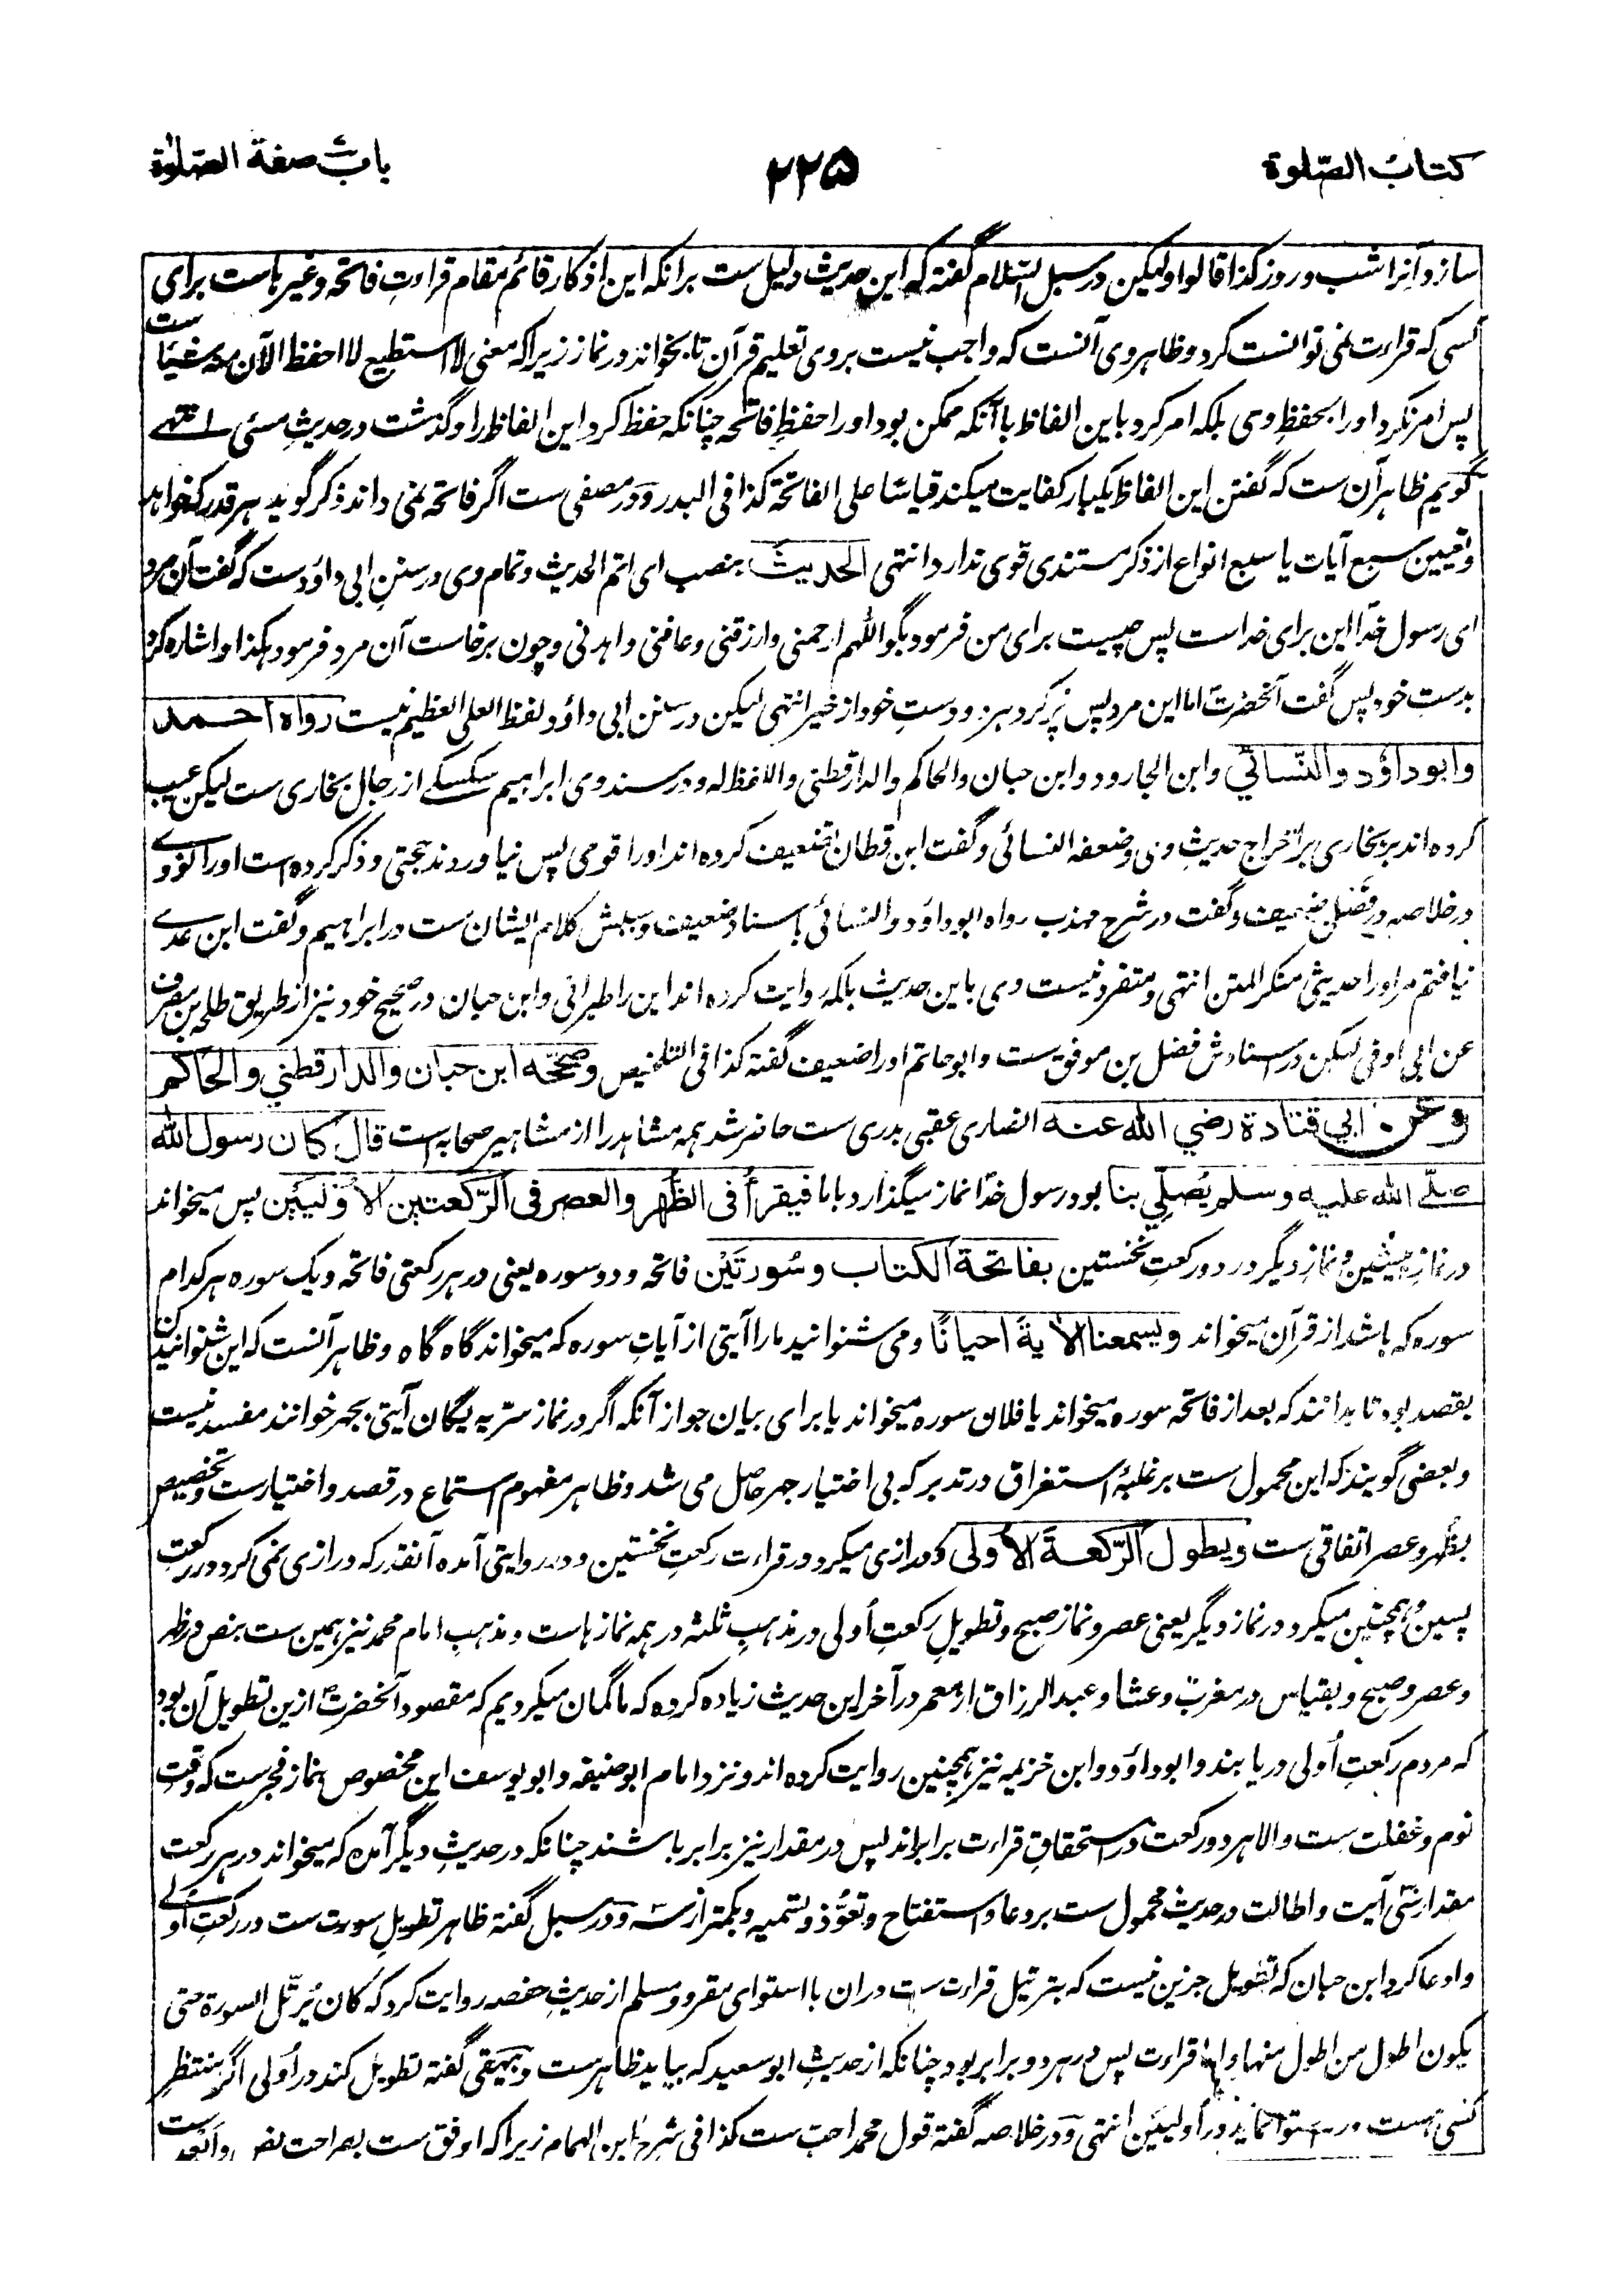 کتابُ الصّلوة ۲۲۵ بابٌ صفة الصّلوٰة
سازد آنرا شب و روز کذا قالوا ولیکن در سبل السّلام گفته که این حدیث دلیل ست برانکه این اذکار قائم مقام قراءتِ فاتحه و غیرهاست برای
کسی که قراءت نمی توانست کرد و ظاهر وی آنست که واجب نیست بروی تعلیم قرآن تا بخواند در نماز زیراکه معنی لا استطیع لا احفظ الآن منه شیئا ست
پس امر نکرد او را بحفظِ وی بلکه امر کرد باین الفاظ با آنکه ممکن بود او را حفظِ فاتحه چنانکه حفظ کرد این الفاظ را و گذشت در حدیثِ مسئ انتهے
گویم ظاهر آن ست که گفتن این الفاظ یکبار کفایت میکند قیاسًا علی الفاتحة کذا فی البدر و در مصفی ست اگر فاتحه نمی داند ذکر گوید هر قدر که خواهد
و تعیین سبع آیات یا سبع انواع از ذکر مستندی قوی ندارد انتهی الحدیثَ بنصب ای اتم الحدیث و تمام وی در سننِ ابی داؤد ست که گفت آن مرد
ای رسول خدّا این برای خداست پس چیست برای من فرمود بگو اللّهم ارحمنی وارزقنی وعافنی واهدنی و چون برخاست آن مرد فرمود هکذا و اشاره کرد
بدستِ خود پس گفت آنحضرتؐ اما این مرد پس پُر کرد هر دو دستِ خود از خیر انتهی لیکن در سنن ابی داؤد لفظ العلی العظیم نیست رواه احمد
وابوداؤد والنّسائي وابن الجارود وابن حبان والحاکم والدارقطنی واللفظ له و در سند وی ابراهیم سکسکے از رجال بخاری ست لیکن عیب
کرده اند بر بخاری بر اخراج حدیثِ وی وضعفه النسائی و گفت ابن قطان تضعیف کرده اند او را قومی پس نیاوردند حجتی و ذکر کرده است او را نووے
در خلاصه در فصل ضعیف و گفت در شرح مهذب رواه ابوداؤد والنسائی باسناد ضعیف و سببش کلام ایشان ست در ابراهیم و گفت ابن عدے
نیافتم مر او را حدیثی منکر المتن انتهی و متفرد نیست وی باین حدیث بلکه روایت کرده اند این را طبرانی وابن حبان در صحیح خود نیز از طریق طلحه بن مصرف
عن ابی اوفی لیکن در اسنادش فضل بن موفق ست و ابوحاتم او را ضعیف گفته کذا فی التلخیص وصحّحه ابن حبان والدارقطني والحاکم
وعن ابي قتادة رضي الله عنه انصاری عقبی بدری ست حاضر شد همه مشاهد را از مشاهیر صحابه است قال کان رسول الله
صلّے الله علیه وسلم یُصلّي بنا بود رسول خدّا نماز میگذارد با ما فیقرأ فی الظّهر والعصر فی الرّکعتین الاُولَیَیْن پس میخواند
در نمازِ پیشین و نمازِ دیگر در دو رکعتِ نخستین بفاتحة الکتاب وسُورتَیْن فاتحه و دو سوره یعنی در هر رکعتی فاتحه و یک سوره هر کدام
سوره که باشد از قرآن میخواند ویسمعنا الاٰیةَ احیانًا و می شنوانید ما را آیتی از آیاتِ سوره که میخواند گاه گاه و ظاهر آنست که این شنوانیدن
بقصد بود تا بدانند که بعد از فاتحه سوره میخواند یا فلان سوره میخواند یا برای بیان جواز آنکه اگر در نماز سرّیه یگان آیتی بجهر خوانند مفسد نیست
و بعضی گویند که این محمول ست بر غلبهٔ استغراق در تدبر که بی اختیار جهر حاصل می شد و ظاهر مفهوم استماع در قصد و اختیار ست و تخصیص
بظهر و عصر اتفاقی ست ویطول الرّکعةَ الاُولی و درازی میکرد در قراءت رکعتِ نخستین و در روایتی آمده آنقدر که درازی نمی کرد در رکعتِ
پسین و همچنین میکرد در نماز دیگر یعنی عصر و نماز صبح و تطویلِ رکعتِ اُولی در مذهبِ ثلثه در همه نمازهاست و مذهبِ امام محمد نیز همین ست بنص در ظهر
و عصر و صبح و بقیاس در مغرب و عشا و عبدالرزاق از معمر در آخر این حدیث زیاده کرده که ما گمان میکردیم که مقصود آنحضرتؐ ازین تطویل آن بود
که مردم رکعتِ اُولی دریابند و ابوداؤد وابن خزیمه نیز همچنین روایت کرده اند و نزد امام ابوحنیفه و ابویوسف این مخصوص بنماز فجر ست که وقتِ
نوم و غفلت ست والا هر دو رکعت در استحقاقِ قراءت برابر اند پس در مقدار نیز برابر باشند چنانکه در حدیثِ دیگر آمده که میخواند در هر رکعت
مقدار سی آیت و اطالت در حدیث محمول ست بر دعا و استفتاح و تعوّذ و تسمیه و بکمتر از سه و در سبل گفته ظاهر تطویلِ سورت ست در رکعتِ اُولے
و ادعا کرد ابن حبان که تطویل جزین نیست که بترتیل قراءت ست دران با استوای مقروء و مسلم از حدیثِ حفصه روایت کرد که کان یُرتّل السورة حتی
یکون اطول من اطول منها و اما قراءت پس در هر دو برابر بود چنانکه از حدیثِ ابوسعید که بیاید ظاهرست و بیهقی گفته تطویل کند در اُولی اگر منتظرِ
کسی هست ورنه استوا نماید در اُولیین انتهی و در خلاصه گفته قول محمد احبّ ست کذا فی شرح ابن الهمام زیراکه اوفق ست بصراحت نص